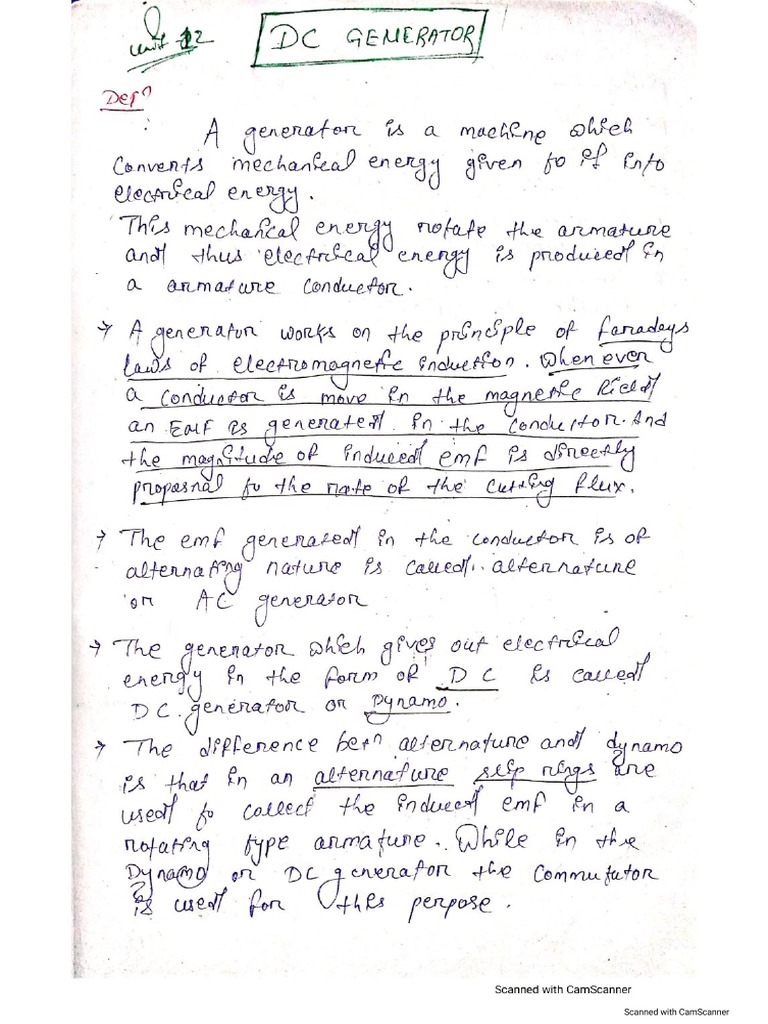 Unit 2
DC GENERATOR
Defn
: A generator is a machine which
converts mechanical energy given to it into
electrical energy.
This mechanical energy rotate the armature
and thus electrical energy is produced in
a armature conductor.
→ A generator works on the principle of faradays
laws of electromagnetic induction. When ever
a conductor is move in the magnetic field
an EMF is generated in the conductor. And
the magnitude of induced emf is directly
proposnal to the rate of the cutting flux.
→ The emf generated in the conductor is of
alternating nature is called alternature
or AC generator
→ The generator which gives out electrical
energy in the form of DC is called
DC generator or Dynamo.
→ The difference betn alternature and dynamo
is that in an alternature slip rings are
used to collect the induced emf in a
rotating type armature. While in the
Dynamo or DC generator the commutator
is used for this perpose.
Scanned with CamScanner
Scanned with CamScanner